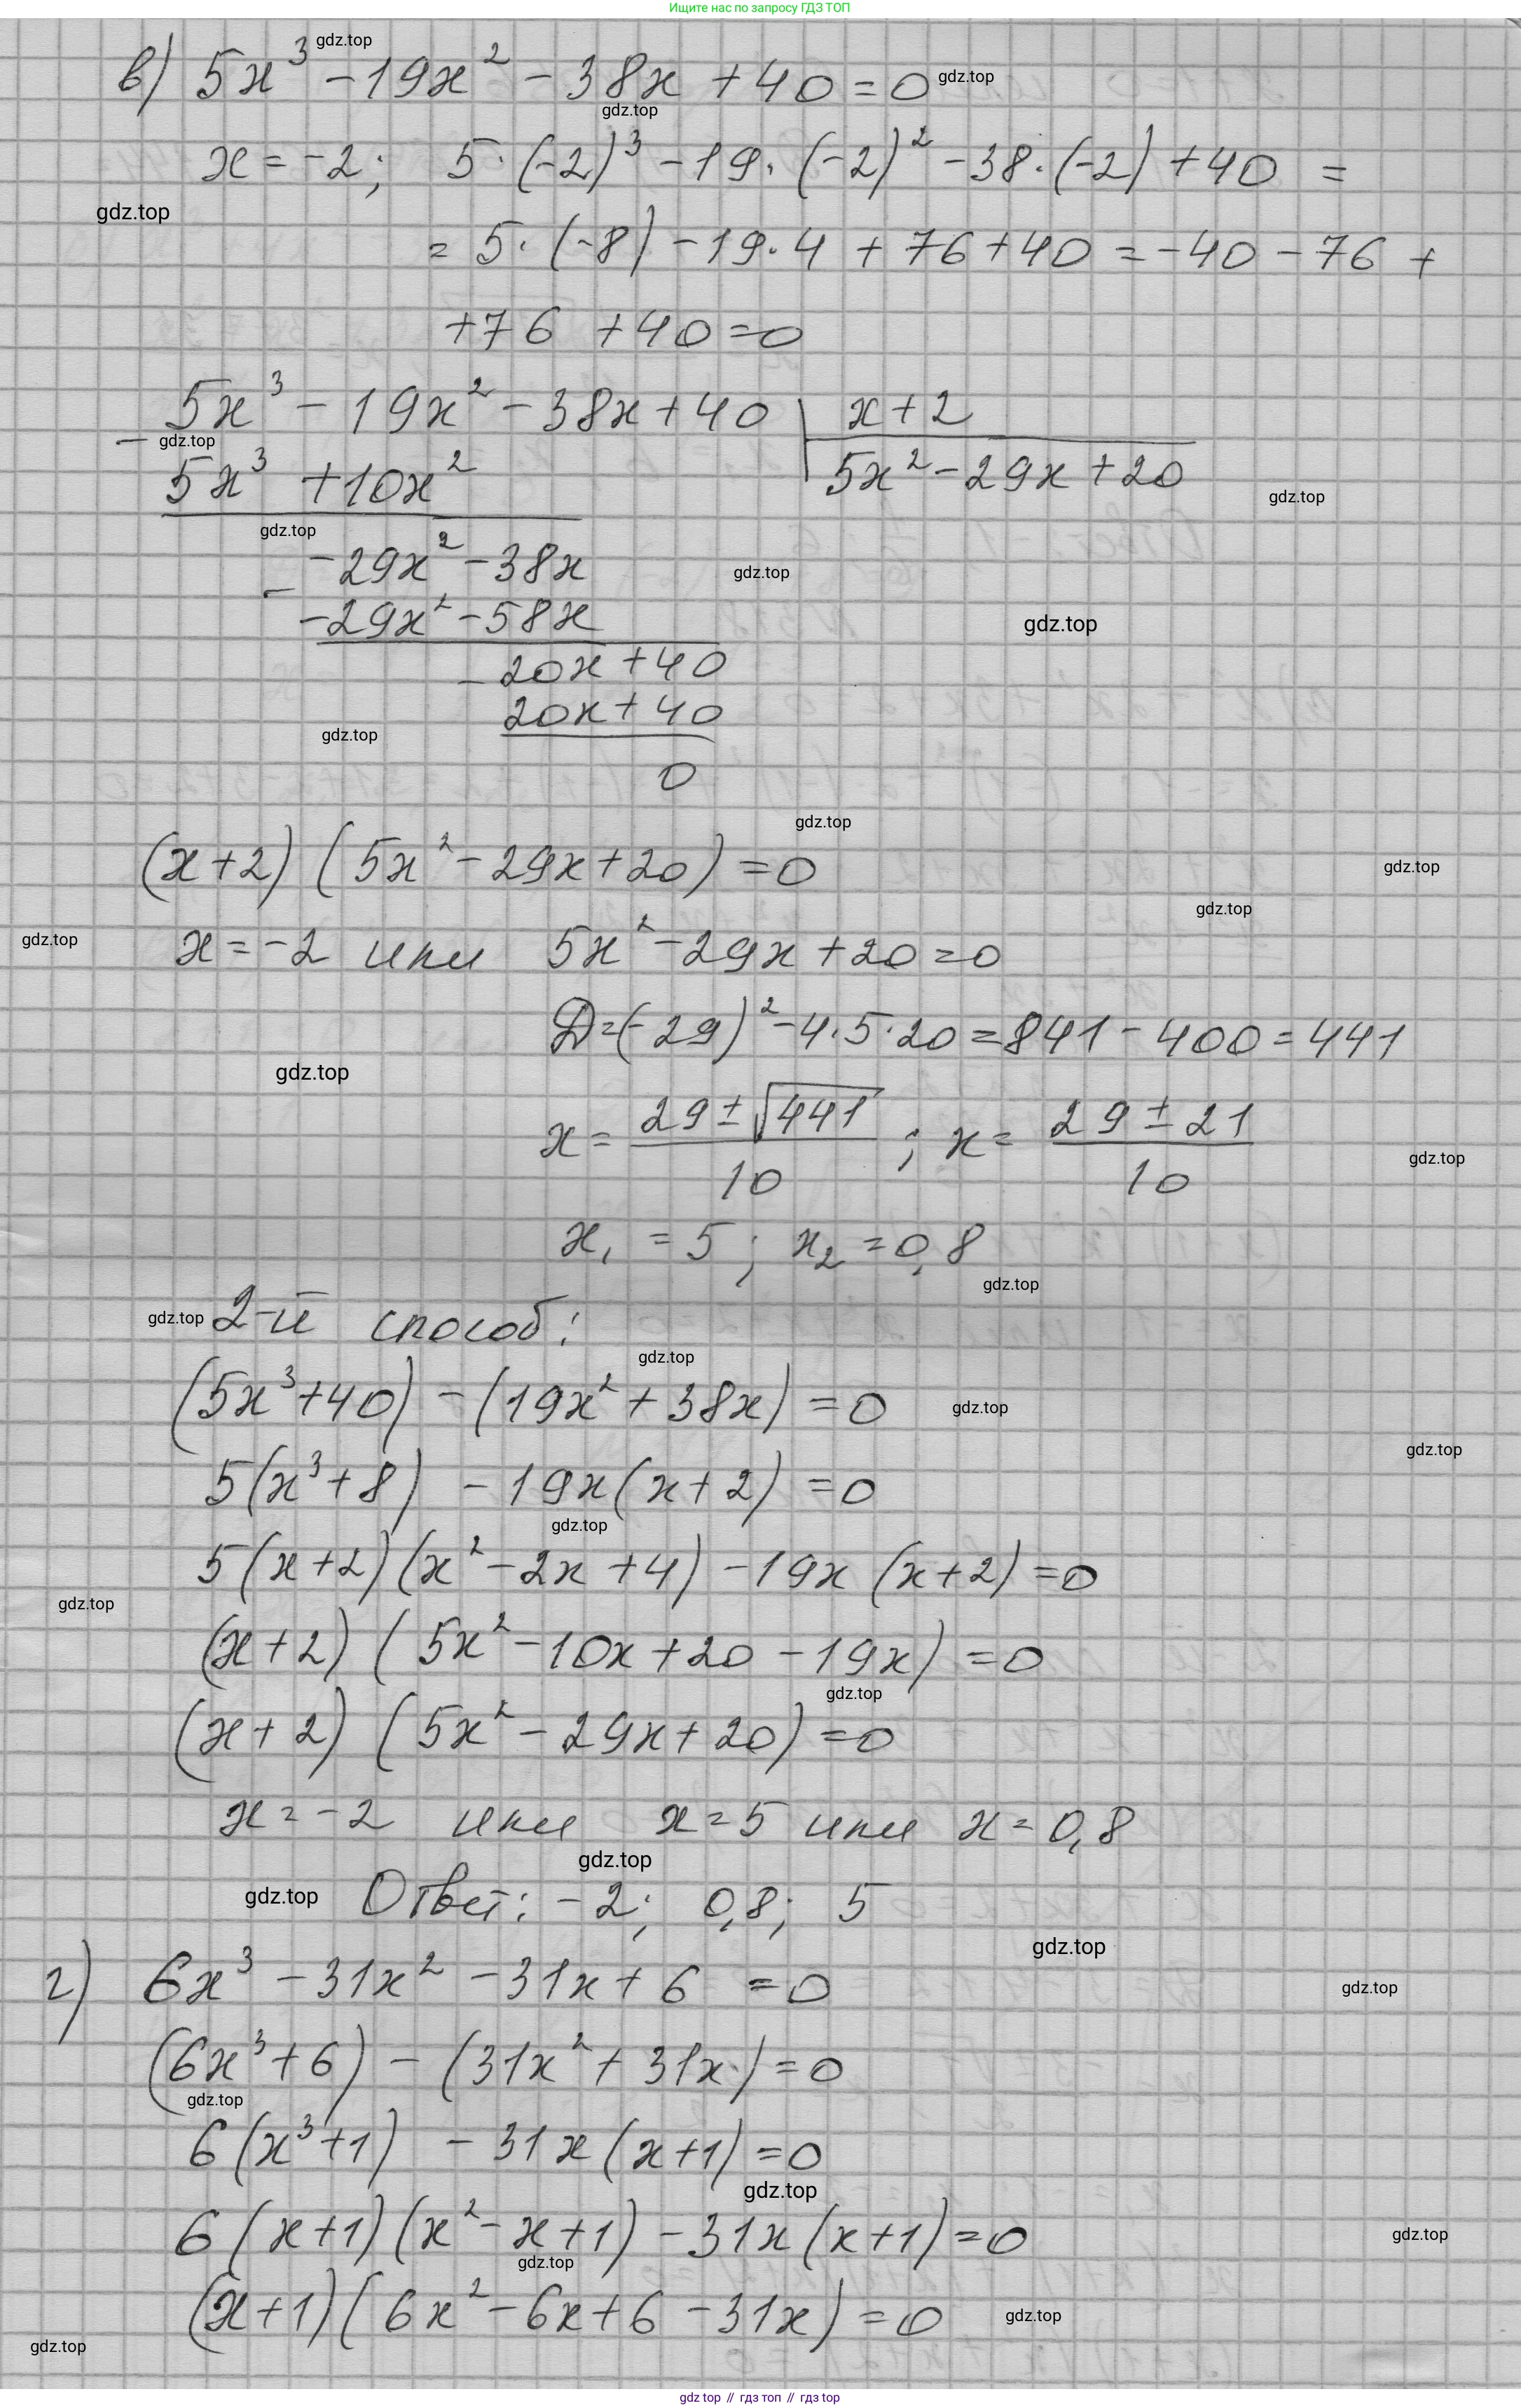 Ищите нас по запросу ГДЗ ТОП
в) 5x³ - 19x² - 38x + 40 = 0
x = -2; 5·(-2)³ - 19·(-2)² - 38·(-2) + 40 =
= 5·(-8) - 19·4 + 76 + 40 = -40 - 76 +
+76 + 40 = 0
5x³ - 19x² - 38x + 40 | x + 2
- 5x³ + 10x² | 5x² - 29x + 20
-29x² - 38x
- -29x² - 58x
- 20x + 40
20x + 40
0
(x + 2)(5x² - 29x + 20) = 0
x = -2 или 5x² - 29x + 20 = 0
D = (-29)² - 4·5·20 = 841 - 400 = 441
x = (29 ± √441)/10; x = (29 ± 21)/10
x₁ = 5; x₂ = 0,8
2-й способ:
(5x³ + 40) - (19x² + 38x) = 0
5(x³ + 8) - 19x(x + 2) = 0
5(x + 2)(x² - 2x + 4) - 19x(x + 2) = 0
(x + 2)(5x² - 10x + 20 - 19x) = 0
(x + 2)(5x² - 29x + 20) = 0
x = -2 или x = 5 или x = 0,8
Ответ: -2; 0,8; 5
г) 6x³ - 31x² - 31x + 6 = 0
(6x³ + 6) - (31x² + 31x) = 0
6(x³ + 1) - 31x(x + 1) = 0
6(x + 1)(x² - x + 1) - 31x(x + 1) = 0
(x + 1)(6x² - 6x + 6 - 31x) = 0
gdz top // гдз топ // gdz top